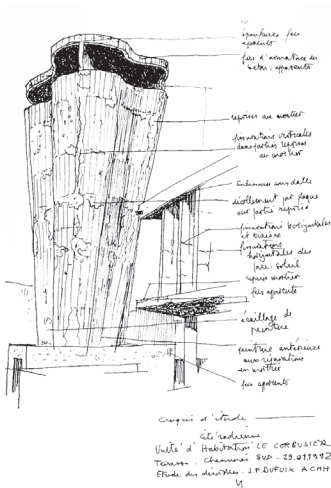 épaufrures fers
apparents
fers d'armature du
béton, apparents
reprises au mortier
fissurations verticales
dans parties reprises
au mortier
Salissures sous dalle
décollement par plaque
sur partie reprise
fissurations horizontales
et biaises
fissurations
horizontales des
pare-soleil
repris mortier
fers apparents
écaillage de
peinture
peinture antérieure
aux réparations
en mortier
fers apparents
Croquis d'étude
Cité radieuse
Unité d'Habitation LE CORBUSIER
Terrasse. Cheminée SUD - 29.07.1992
Etude des désordres - J.P. DUFOIX ACMH